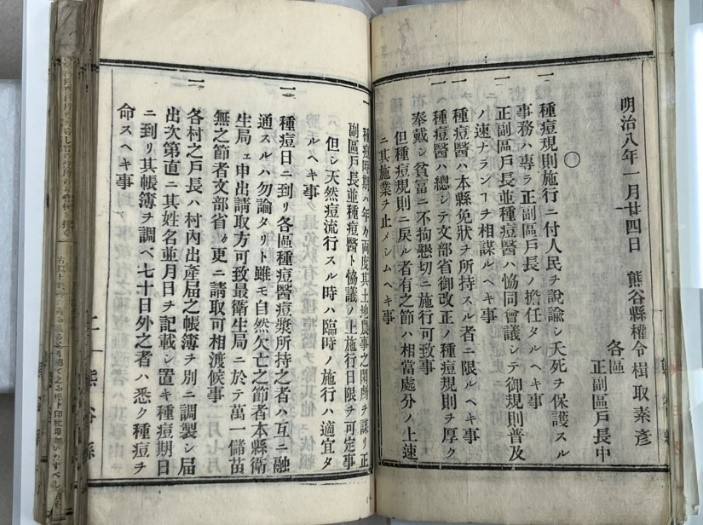 明治八年一月廿四日 熊谷縣權令楫取素彦
各區
正副區戸長中
〇
一 種痘規則施行ニ付人民ヲ説諭シ夭死ヲ保護スル
事務ハ專ラ正副區戸長ノ擔任タルヘキ事
一 正副區戸長並種痘醫ハ協同會議シテ御規則普及
ノ速ナランヿヲ相謀ルヘキ事
一 種痘醫ハ本縣免狀ヲ所持スル者ニ限ルヘキ事
一 種痘醫ハ總シテ文部省御改正ノ種痘規則ヲ厚ク
奉戴シ貧富ニ不拘懇切ニ施行可致事
但種痘規則ニ戻ル者有之節ハ相當處分ノ上速
ニ其施業ヲ止メシムヘキ事
一 種痘時期ハ年々兩度其土地農事之閑
副區戸長並種痘醫ト協議ノ上施行日限ヲ可定事
但シ天然痘流行スル時ハ臨時ノ施行ハ適宜タ
ルヘキ事
一 種痘日ニ到リ各區種痘醫痘漿所持之者ハ互ニ融
通スルハ勿論タリト雖モ自然欠亡之節者本縣衛
生局ヱ申出請取方可致最衛生局ニ於テ萬一儲苗
無之節者文部省ヨリ更ニ請取可相渡候事
一 各村之戸長ハ村内出產屆之帳簿ヲ別ニ調製シ屆
出次第直ニ其姓名並月日ヲ記載シ置キ種痘期日
ニ到リ其帳簿ヲ調ベ七十日外之者ハ悉ク種痘ヲ
命スヘキ事
二
熊谷縣